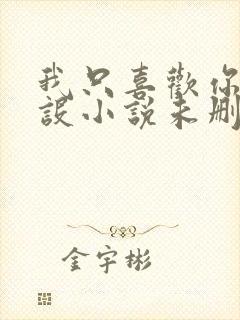 我只喜歡你
設小說未刪
金宇彬